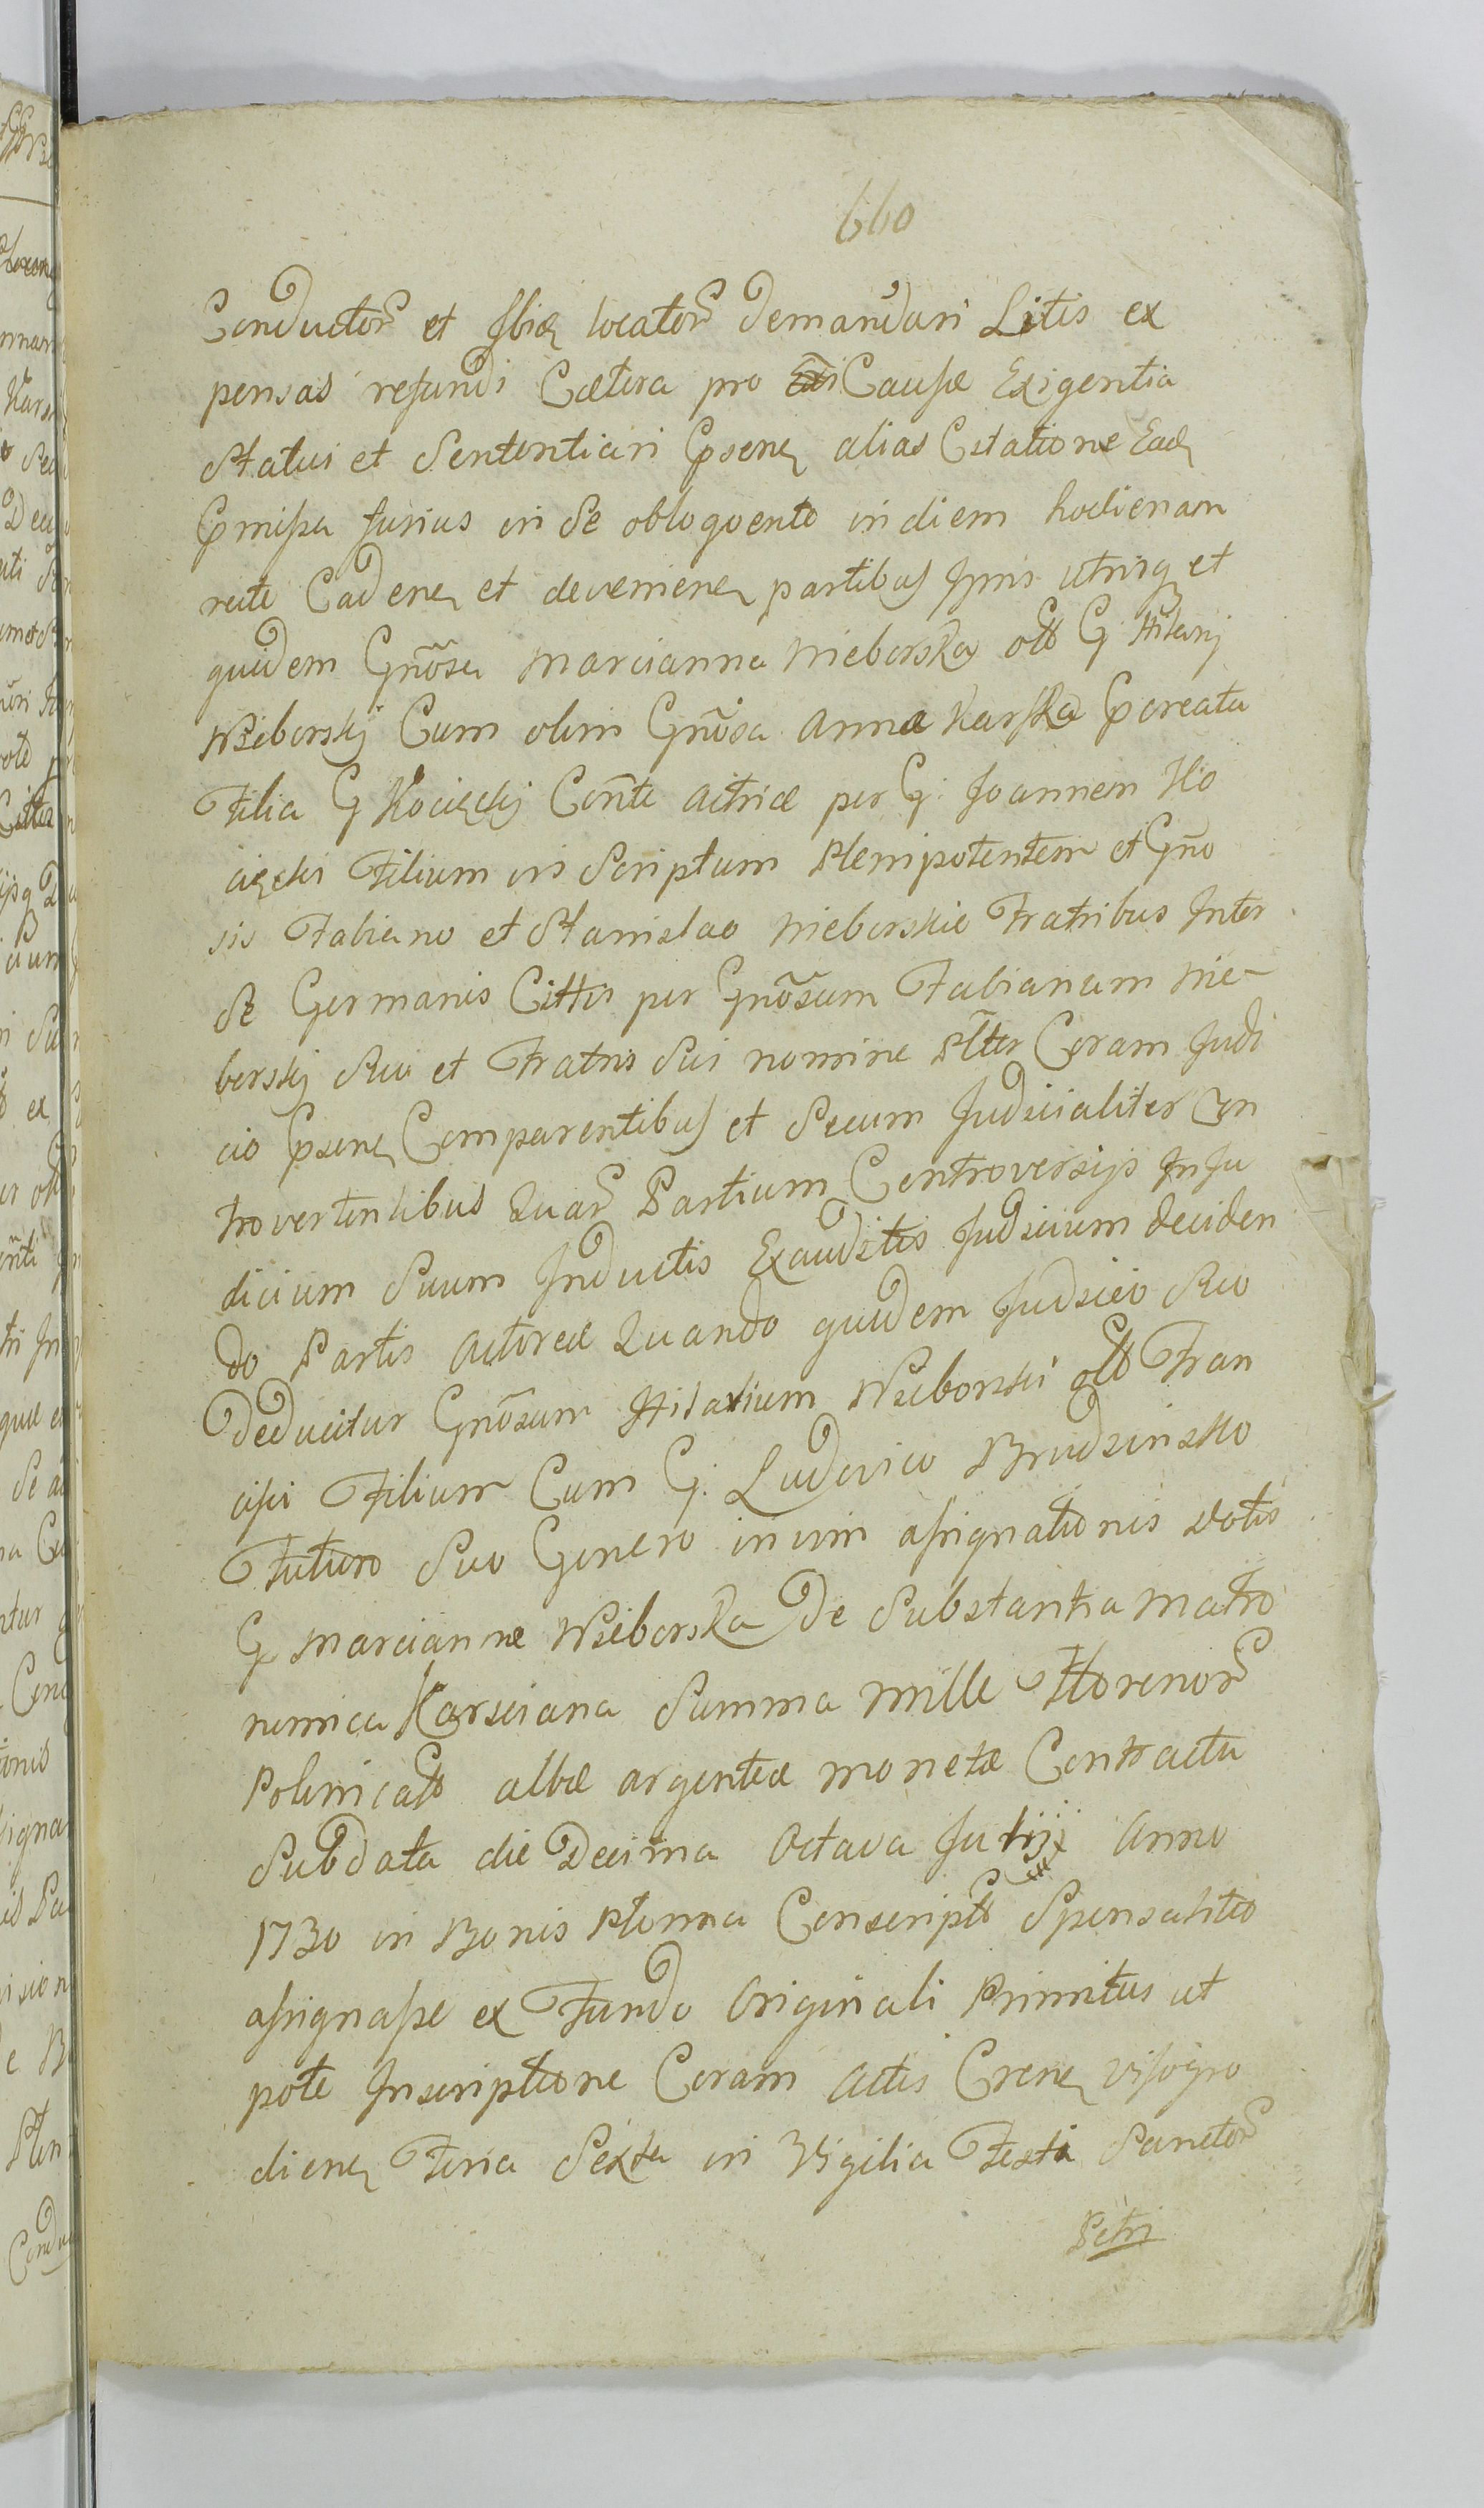 660
Conductor et Ibidq locator demandari Litis ex
pensas refundi Cætera pro Causæ Exigentia
Statui et Sententiari Cpsenq alias Citatione Eadq
Cpmissa furius in Se obloquente in diem hodiernam
recte Cadenq et devenienq partibus Ipnis utrisq et
quidem Gnõsa Marcianna Nieborska olt G Hilarij
Nieborskj Cum olim Gnõsa Anna Karska Cporeata
Filia G Kocięckj Cõnte Actrice per G. Joannem Ko
cięcki Filium in Scriptum Plenipotentem et Gnõ
sis Fabiano et Stanislao Nieborskie Fratribus Inter
Se Germanis Cittis per Gnõsum Fabianum Nie-
borskj Suo et Fratris Sui nomine Pltter Coram Judi
cio Cpsenq Comparentibus et Secum Judicialiter Con
trovertentibus Quar Partium Controversijs In Ju
dicium Suum Inductis Exauditis Judicium deciden
do Partis Actoreæ Quando quidem Judicio Suo
Deducitur Gnõsum Hilarium Nieborski olt Fran
cisci Filium Cum G. Ludovico Brudzinsko
Futuro Suo Genero in vim assignationis Dotis
G Marciannæ Nieborska De Substantia Matro
nimica Karsciana Summa Mille Florenor
Polonicalt albæ argenteæ monetæ Contractu
Subdata die Decima Octava Julij Anno
1730 in Bonis Plonna Conscripto Sponsalitio
assignasse ex Fundo Originali Primitus ut
pote Inscriptione Coram Actis Crenq visogro
dienq Feria Sexta in Vigilia Festi Sanctor
Petri